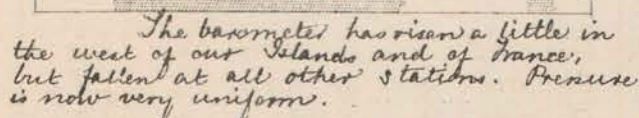 The barometer has risen a little in
the west of our Islands and of France,
but fallen at all other stations. Pressure
is now very uniform.